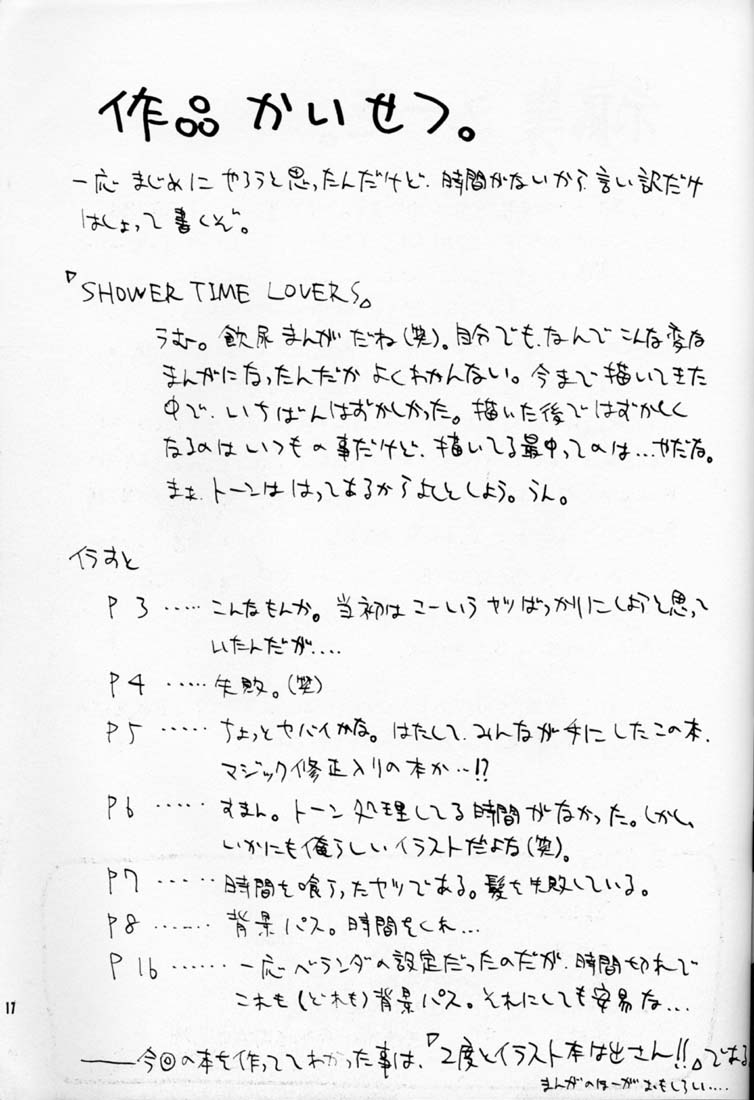 作品かいせつ。
一応まじめにやろうと思ったんだけど、時間がないから、言い訳だけ
はしょって書くぞ。
『SHOWER TIME LOVERS』
うむ。飲尿まんがだね(笑)。自分でも、なんでこんな変な
まんがになったんだかよくわかんない。今まで描いてきた
中で、いちばんはずかしかった。描いた後ではずかしく
なるのはいつもの事だけど、描いてる最中ってのは…やだな。
まぁ、トーンははってあるからよしとしよう。うん。
イラすと
P3……こんなもんか。当初はこーいうヤツばっかりにしようと思って
いたんだが‥‥
P4……失敗。(笑)
P5……ちょっとヤバイかな。はたして、みんなが手にしたこの本、
マジック修正入りの本か…!?
P6……すまん。トーン処理してる時間がなかった。しかし、
いかにも俺らしいイラストだよな(笑)。
P7……時間を喰らったヤツである。髪を失敗している。
P8……背景パス。時間をくれ…
P16……一応ベランダの設定だったのだが、時間切れで
これも(どれも)背景パス。それにしても安易な…
17
――今回の本を作っててわかった事は、『2度とイラスト本は出さん!!』である
まんがのほーがおもしろい‥‥